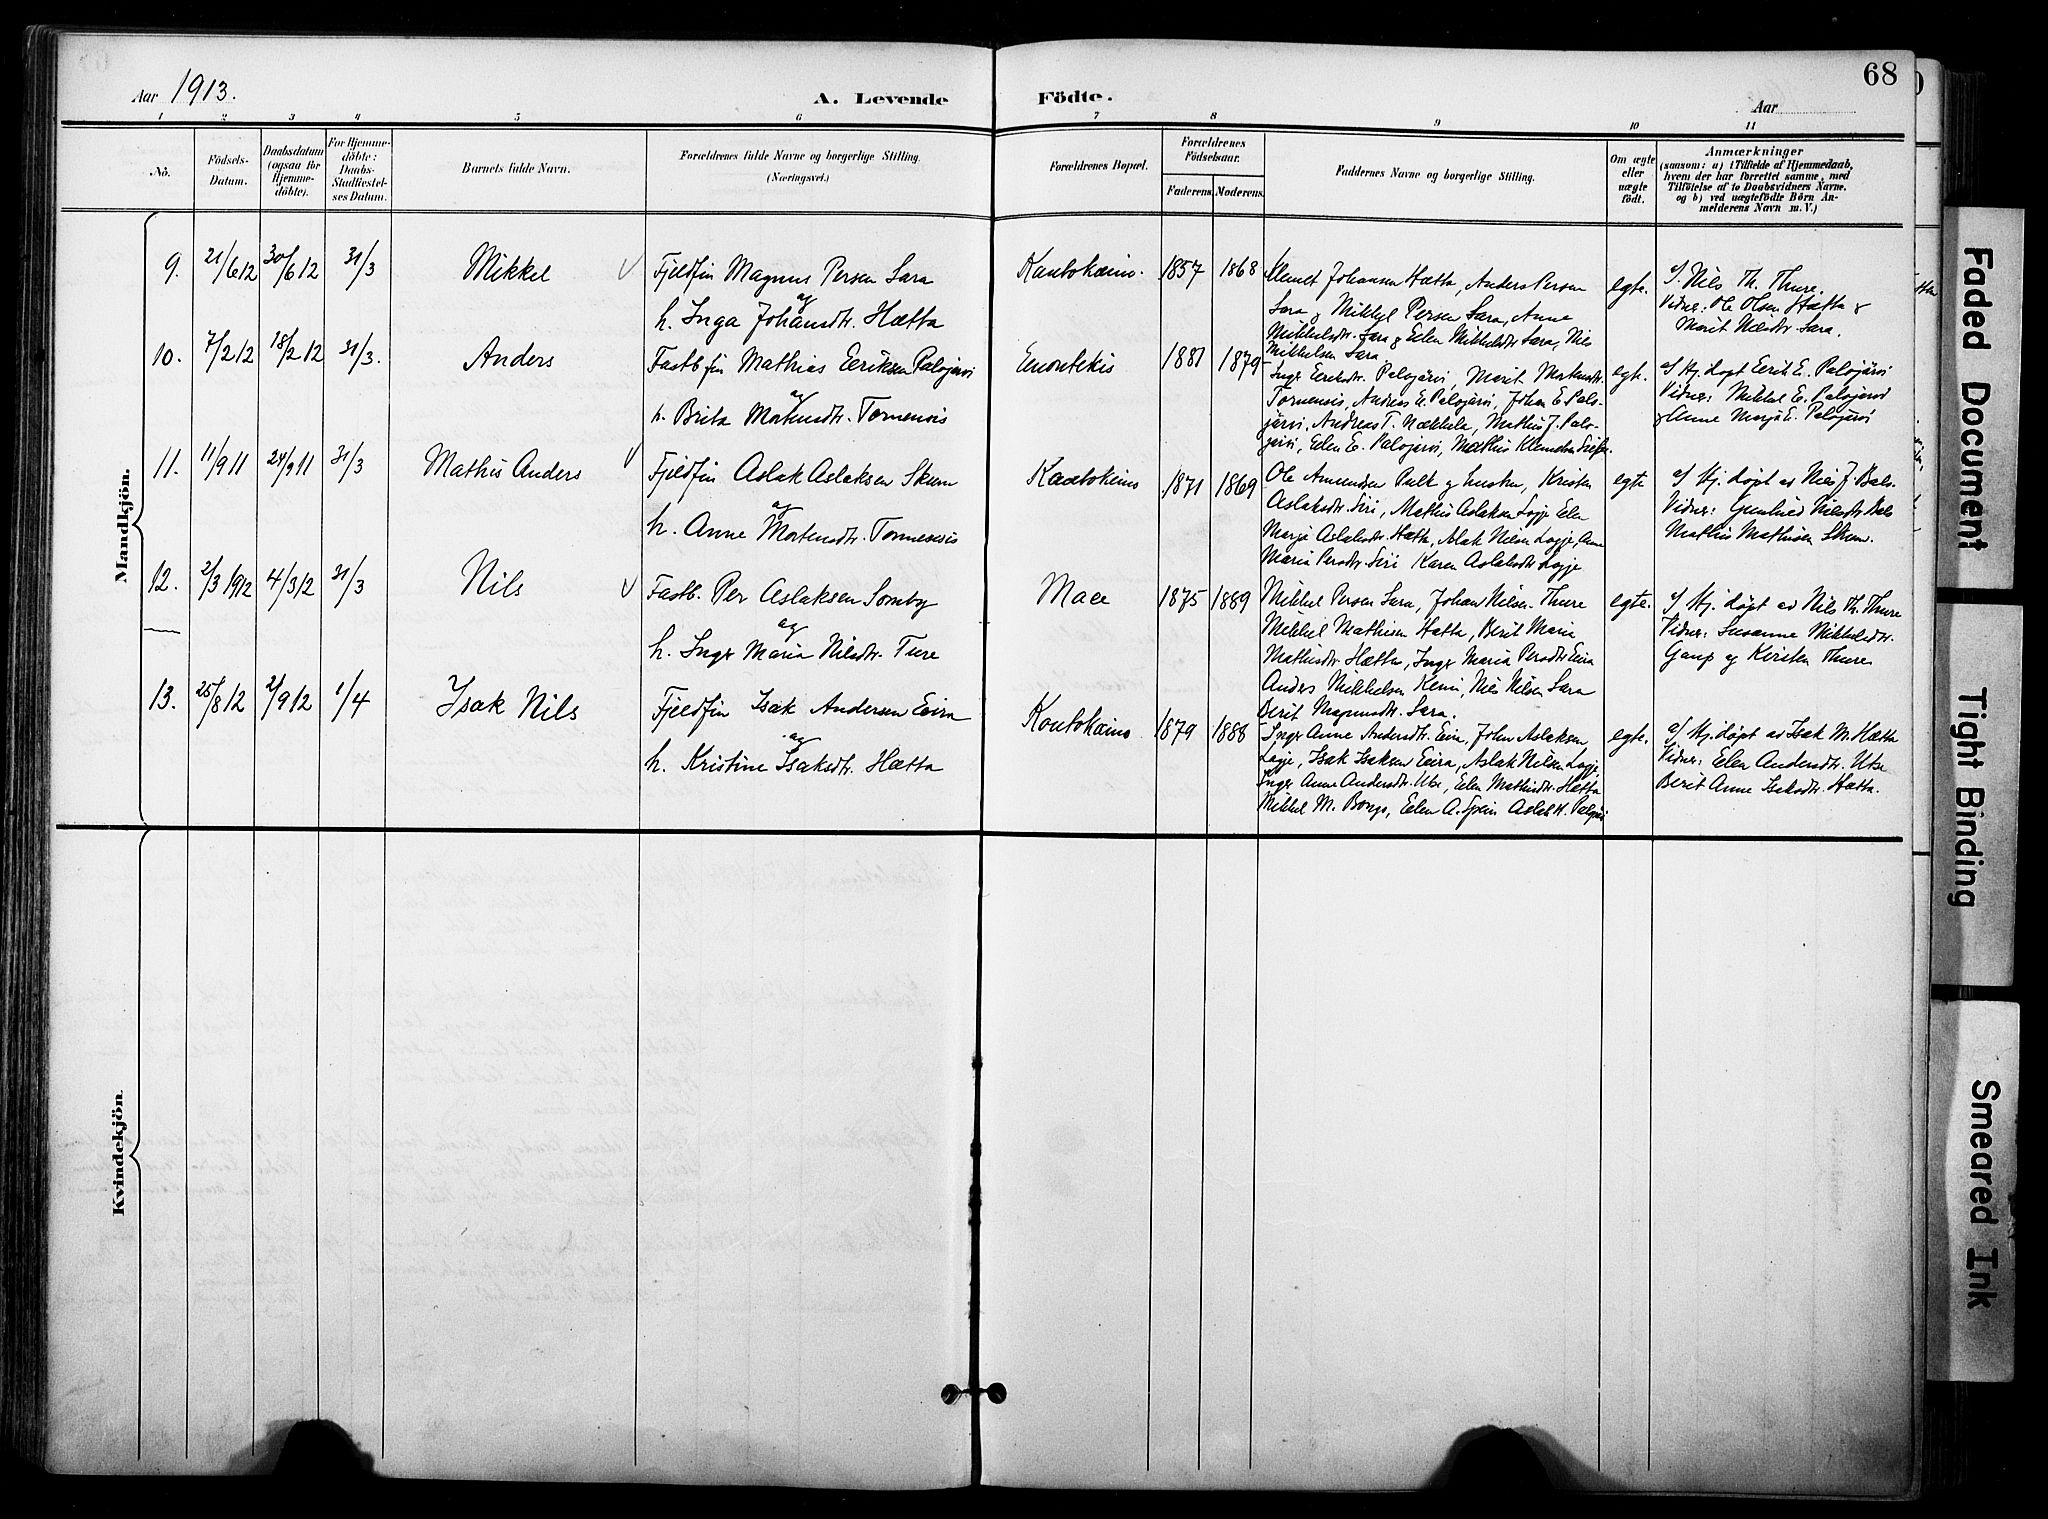 Aar 1913.
A. Levende Födte.
Aar
68
1 2 3 4 5 6 7 8 9 10 11
No.
Födsels-
Datum.
Daabsdatum
(ogsaa for
Hjemme-
döbte).
For Hjemme-
döbte:
Daabs-
Stadfæstel-
ses Datum.
Barnets fulde Navn.
Forældrenes fulde Navne og borgerlige Stilling.
(Næringsvei.)
Forældrenes Bopæl.
Forældrenes
Födselsaar.
Faderens. Moderens.
Faddernes Navne og borgerlige Stilling.
Om ægte
eller
uægte
födt.
Anmærkninger
(saasom: a) i Tilfælde af Hjemmedaab,
hvem der har forrettet samme, med
Tilföielse af to Daabsvidners Navne.
og b) ved uægtefödte Börn An-
melderens Navn m. V.)
Mandkjön.
9. 21/6 12 30/6 12 31/3 Mikkel Fjeldfin Magnus Persen Sara
og
h. Inga Johansdtr. Hætta
Kautokeino. 1857 1868
Klemet Johansen Hætta, Anders Persen
Sara og Mikkel Persen Sara, Anne
Mikkelsdtr. Sara og Elen Mikkelsdtr Sara, Nils
Mikkelsen Sara
egte.
Nils Th. Thure.
Vidner: Ole Olsen Hætta &
Marit Nilsdtr Sara.
10. 7/2 12 18/2 12 31/3. Anders Fastb fin Mathias Eeriksen Palojærvi
og
h. Brita Mortensdtr. Tornensis
Enontekis 1881 1879
Inger Eeriksdtr. Palojärvi, Marit Mortensdtr.
Tornensis, Andreas E. Palojärvi, Johan E. Palo-
järvi, Andreas T. Nækkela, Mathis J. Palo-
järvi, Elen E. Palojärvi, Mathis Klemetsen
egte.
a/ Hj. døpt Eerik E. Palojärvi
Vidner: Mikkel E. Palojärvi
& Anne Marja E. Palojärvi
11. 11/9 11 24/9 11 31/3 Mathis Anders Fjeldfin Aslak Aslaksen Skum
og
h. Anne Mortensdtr. Tornensis
Kautokeino 1871 1869
Ole Amundsen Pulk og hustru, Kristen
Aslaksdtr. Siri, Mathis Aslaksen Logje Elen
Marja Aslaksdtr. Hætta, Aslak Nilsen Logje, Anne
Maria Persdtr. Siri Karen Aslaksdtr Logje
egte
a/ Hj. døpt av Nils J. Bals.
Vidner: Gunhild Nilsdtr Bals
Mathis Mathisen Skum.
12. 2/3 1912 4/3 12 31/3 Nils Fastb. Per Aslaksen Somby
og
h. Inger Maria Nilsdtr. Ture
Mace 1875 1889
Mikkel Persen Sara, Johan Nilsen Thure
Mikkel Mathisen Hætta, Berit Maria
Mathisdtr. Hætta, Inger Maria Persdtr Eira
Anders Mikkelsen Kemi, Nils Nilsen Sara
Berit Magnusdtr. Sara.
egte.
a/ Hj. døpt av Nils Th. Thure
Vidner: Susanne Mikkelsdtr.
Gaup og Kirsten Thure
13. 25/8 12 2/9 12 1/4 Isak Nils Fjeldfin Isak Andersen Eira
og
h. Kristine Isaksdtr. Hætta
Kautokeino 1879 1888
Inger Anne Andersdtr. Eira, John Aslaksen
Logje, Isak Isaksen Eira, Aslak Nilsen Logje,
Inger Anne Andersdtr. Utse, Elen Mathisdtr. Hætta
Mikkel M. Bongo, Elen A. Spein Aslak H.
egte.
a/ Hj. døpt av Isak M. Hætta
Vidner: Elen Andersdtr. Utse
Berit Anne Isaksdtr. Hætta.
Kvindekjön.
Faded Document
Tight Binding
Smeared Ink